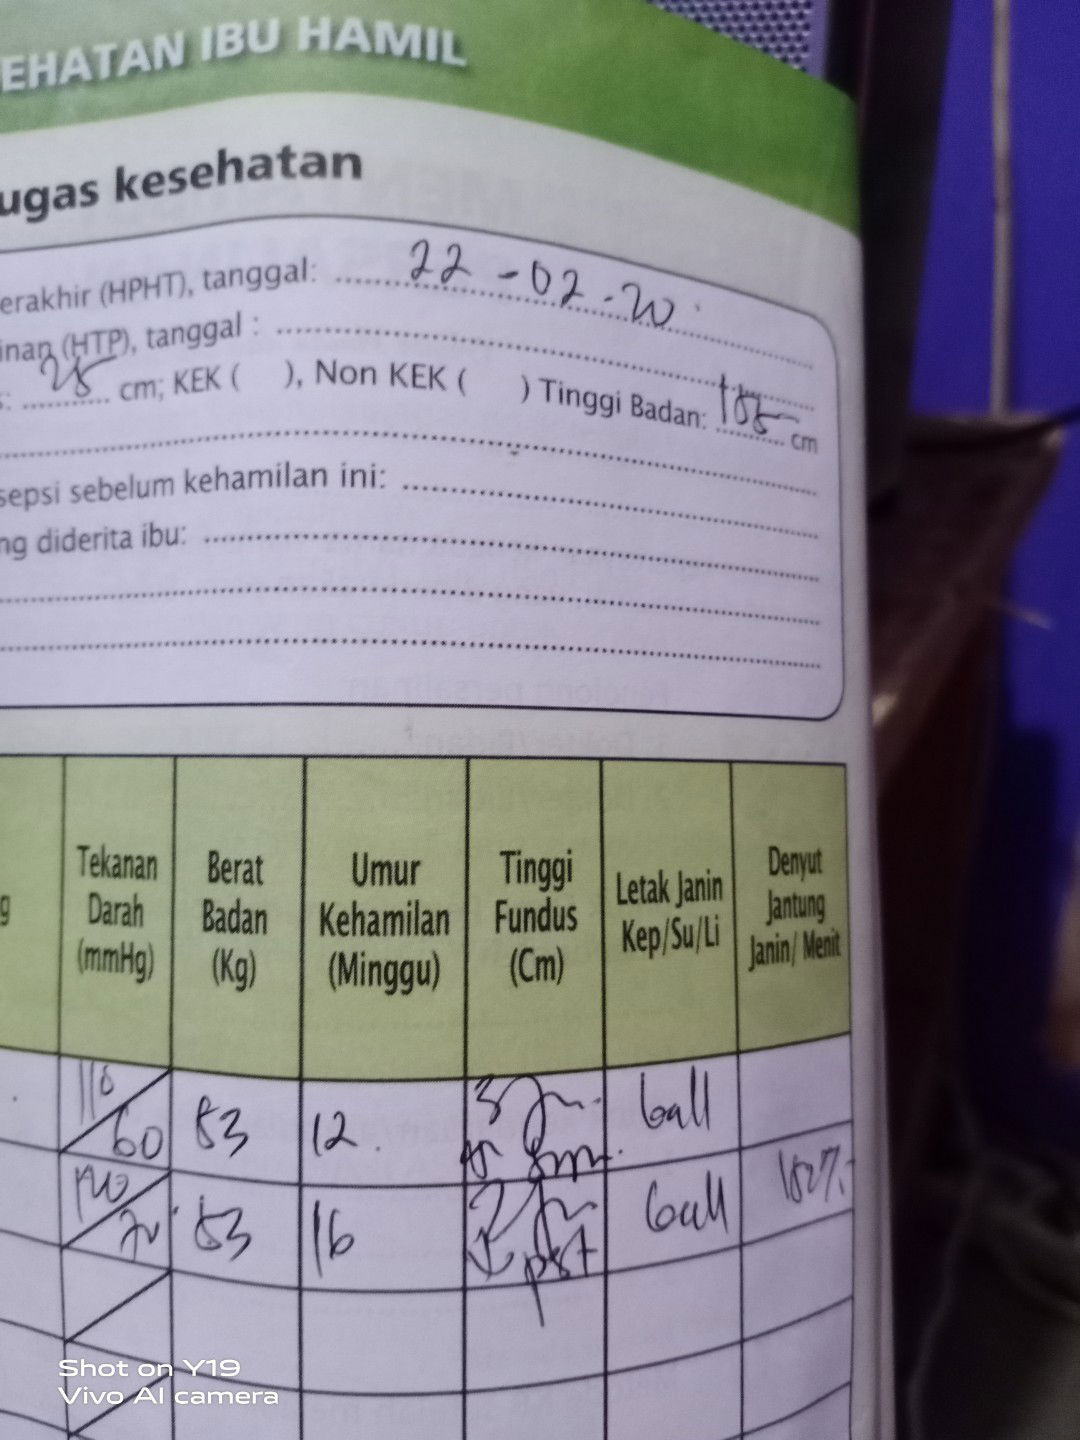 EHATAN IBU HAMIL
ugas kesehatan
erakhir (HPHT), tanggal: 22-02-20
inan (HTP), tanggal :
: cm; KEK ( ), Non KEK ( ) Tinggi Badan: cm
sepsi sebelum kehamilan ini:
ng diderita ibu:
g Tekanan Darah (mmHg) Berat Badan (Kg) Umur Kehamilan (Minggu) Tinggi Fundus (Cm) Letak Janin Kep/Su/Li Denyut Jantung Janin/ Menit
110/60 53 12 3 ball
53 16 pst ball
Shot on Y19
Vivo AI camera